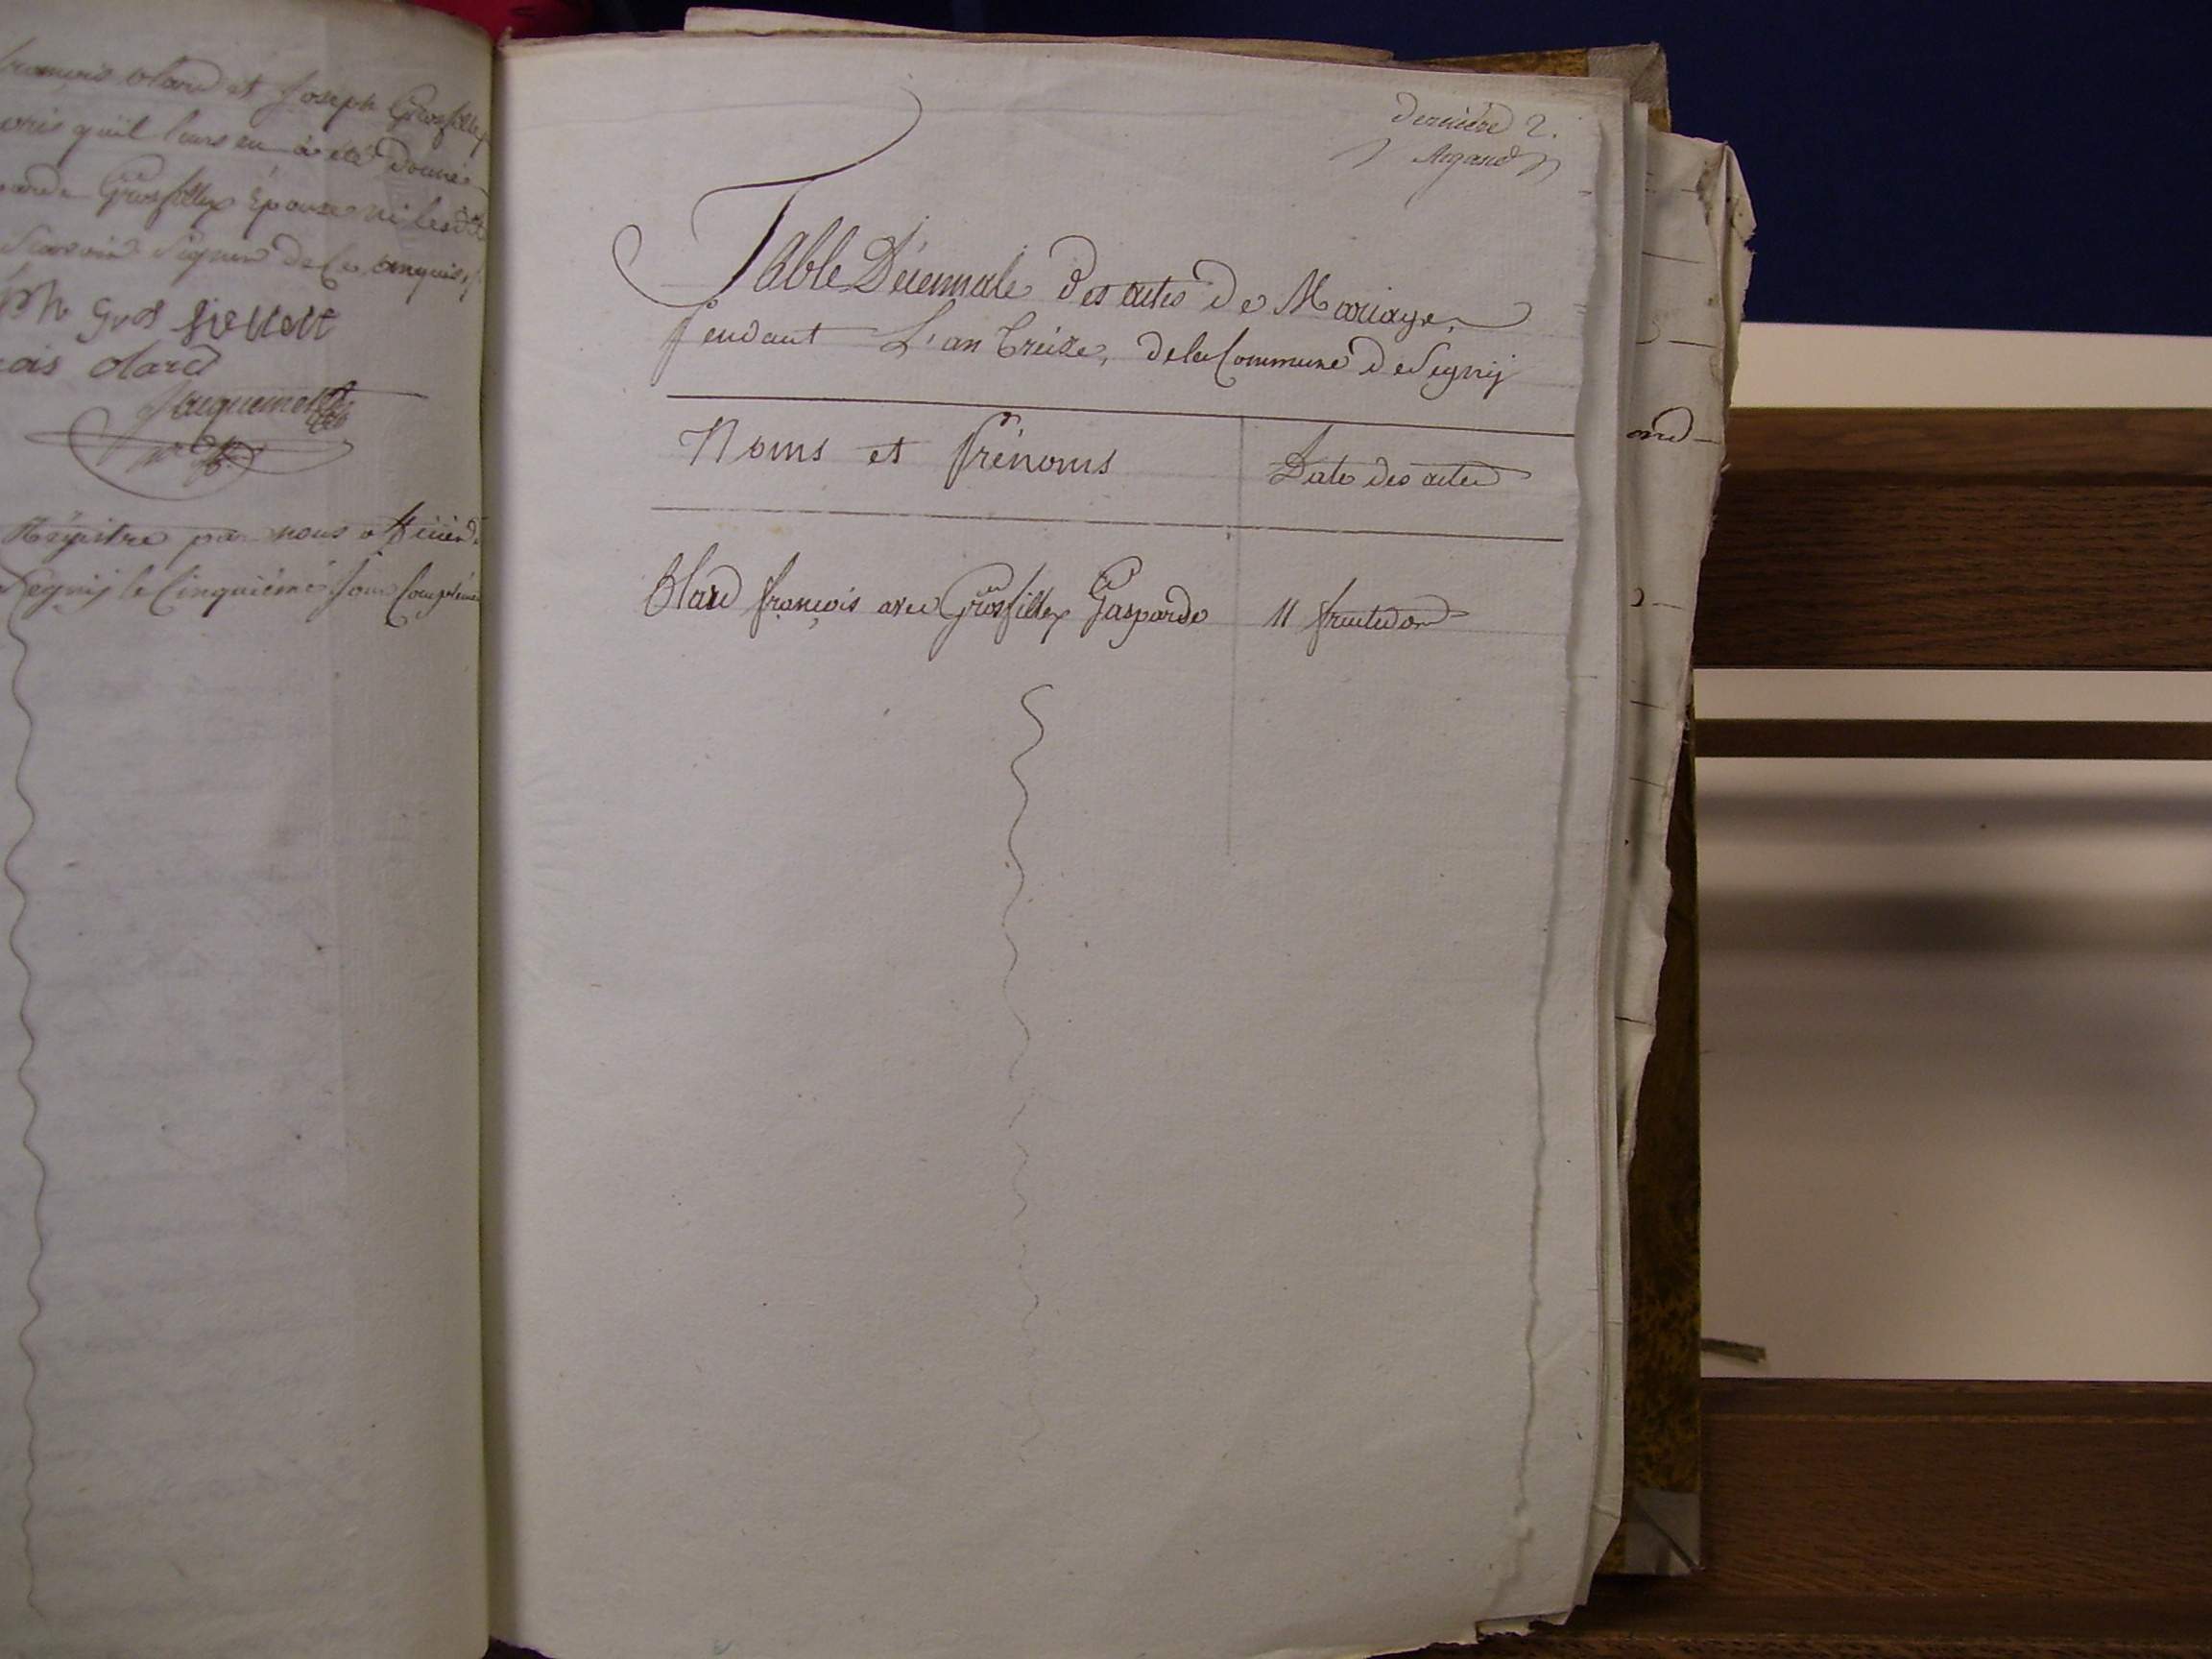 et Joseph Grosfillex
qu'il leurs en a été donné
Grosfillex Épouse ni les dits
Scavoir Signer de Ce enquis
olard
Jacquemot
Régistre par nous officier
Segnij le Cinquiéme Jour Complém
derniére 2.
Argand
Table Décennale des actes de Mariage,
pendant L'an treize, de la Commune de Segnij
Noms et Prénoms
Date des actes
Olard françois avec Grosfillex Gasparde
11 fructidor